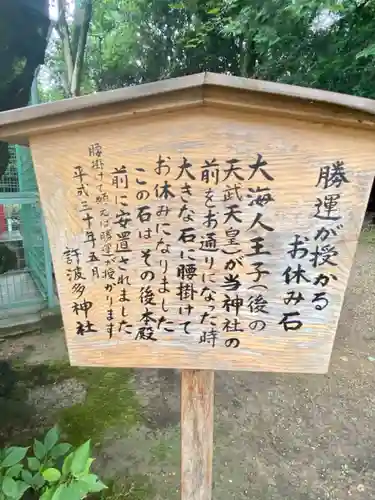 勝運が授かる
お休み石
大海人王子(後の
天武天皇)が当神社の
前をお通りになった時
大きな石に腰掛けて
お休みになりました
この石はその後本殿
前に安置されました
腰掛けて願えば勝運が授かります
平成三十年五月
許波多神社